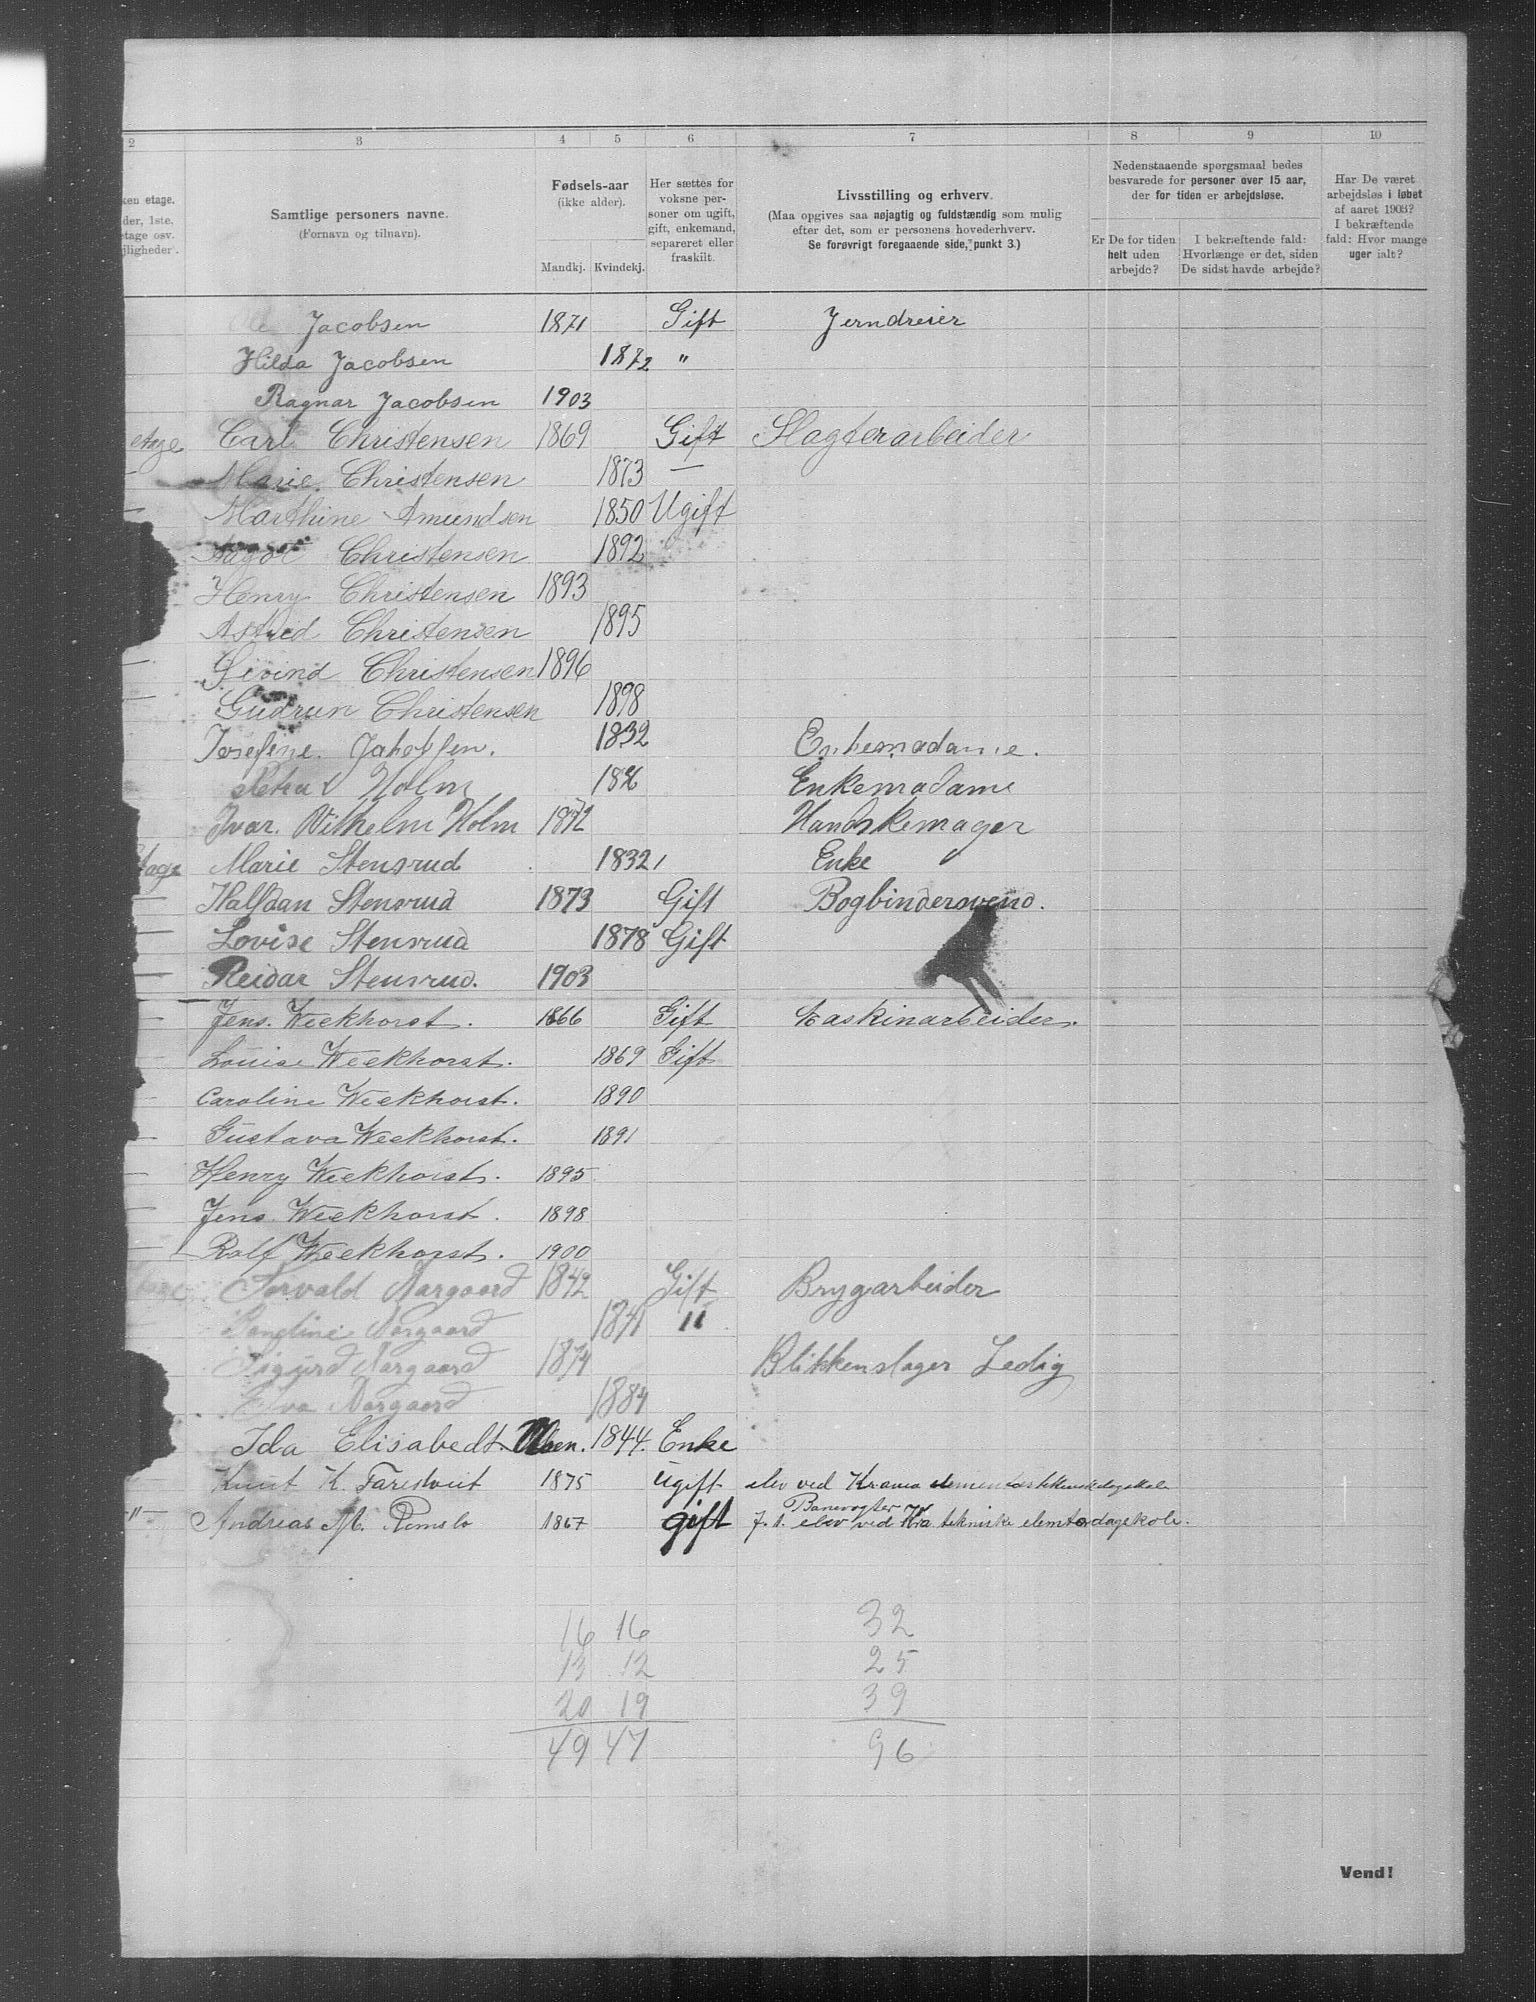 2 3 4 5 6 7 8 9 10
ken etage.
der, 1ste,
etage osv.
jligheder.
Samtlige personers navne.
(Fornavn og tilnavn).
Fødsels-aar
(ikke alder).
Mandkj. Kvindekj.
Her sættes for
voksne per-
soner om ugift,
gift, enkemand,
separeret eller
fraskilt.
Livsstilling og erhverv.
(Maa opgives saa nøjagtig og fuldstændig som mulig
efter det, som er personens hovederhverv.
Se forøvrigt foregaaende side, punkt 3.)
Nedenstaaende spørgsmaal bedes
besvarede for personer over 15 aar,
der for tiden er arbejdsløse.
Er De for tiden
helt uden
arbejde?
I bekræftende fald:
Hvorlænge er det, siden
De sidst havde arbejde?
Har De været
arbejdsløs i løbet
af aaret 1903?
I bekræftende
fald: Hvor mange
uger ialt?
Ole Jacobsen 1871 Gift Jerndreier
Hilda Jacobsen 1872 "
Ragnar Jacobsen 1903
etage Carl Christensen 1869 Gift Slagterarbeider
Marie Christensen 1873 —
Marthine Amundsen 1850 Ugift
Christensen 1892
Henry Christensen 1893
Astrid Christensen 1895
Øivind Christensen 1896
Gudrun Christensen 1898
Josefine Jakobsen. 1832 Enkemadame.
Holm Enkemadame
Ivar. Wilhelm Holm 1872 Handskemager
Etage Marie Stensrud 1832 Enke
Halfdan Stensrud 1873 Gift Bogbindersvend.
Lovise Stensrud 1878 Gift
Reidar Stensrud. 1903
Jens. Weekhorst. 1866 Gift Maskinarbeider.
Louise Weekhorst. 1869 Gift
Caroline Weekhorst. 1890
Gustava Weekhorst. 1891
Henry Weekhorst. 1895
Jens Weekhorst. 1898
Rolf Weekhorst. 1900
Torvald Nargaard 1842 Gift Brygarbeider
Nargaard 1841 "
Sigurd Nargaard 1874 Blikkenslager Ledig
Nargaard 1884
Ida Elisabedt Olsen. 1844. Enke
Knut K. Farestveit 1875 Ugift elev ved Krania elementærtekniskdagskole
Banevogter
"— Andreas M. Remslo 1867 gift f. t. elev ved Kra tekniske elemtærdagskole.
16 16 32
13 12 25
20 19 39
49 47 96
Vend!